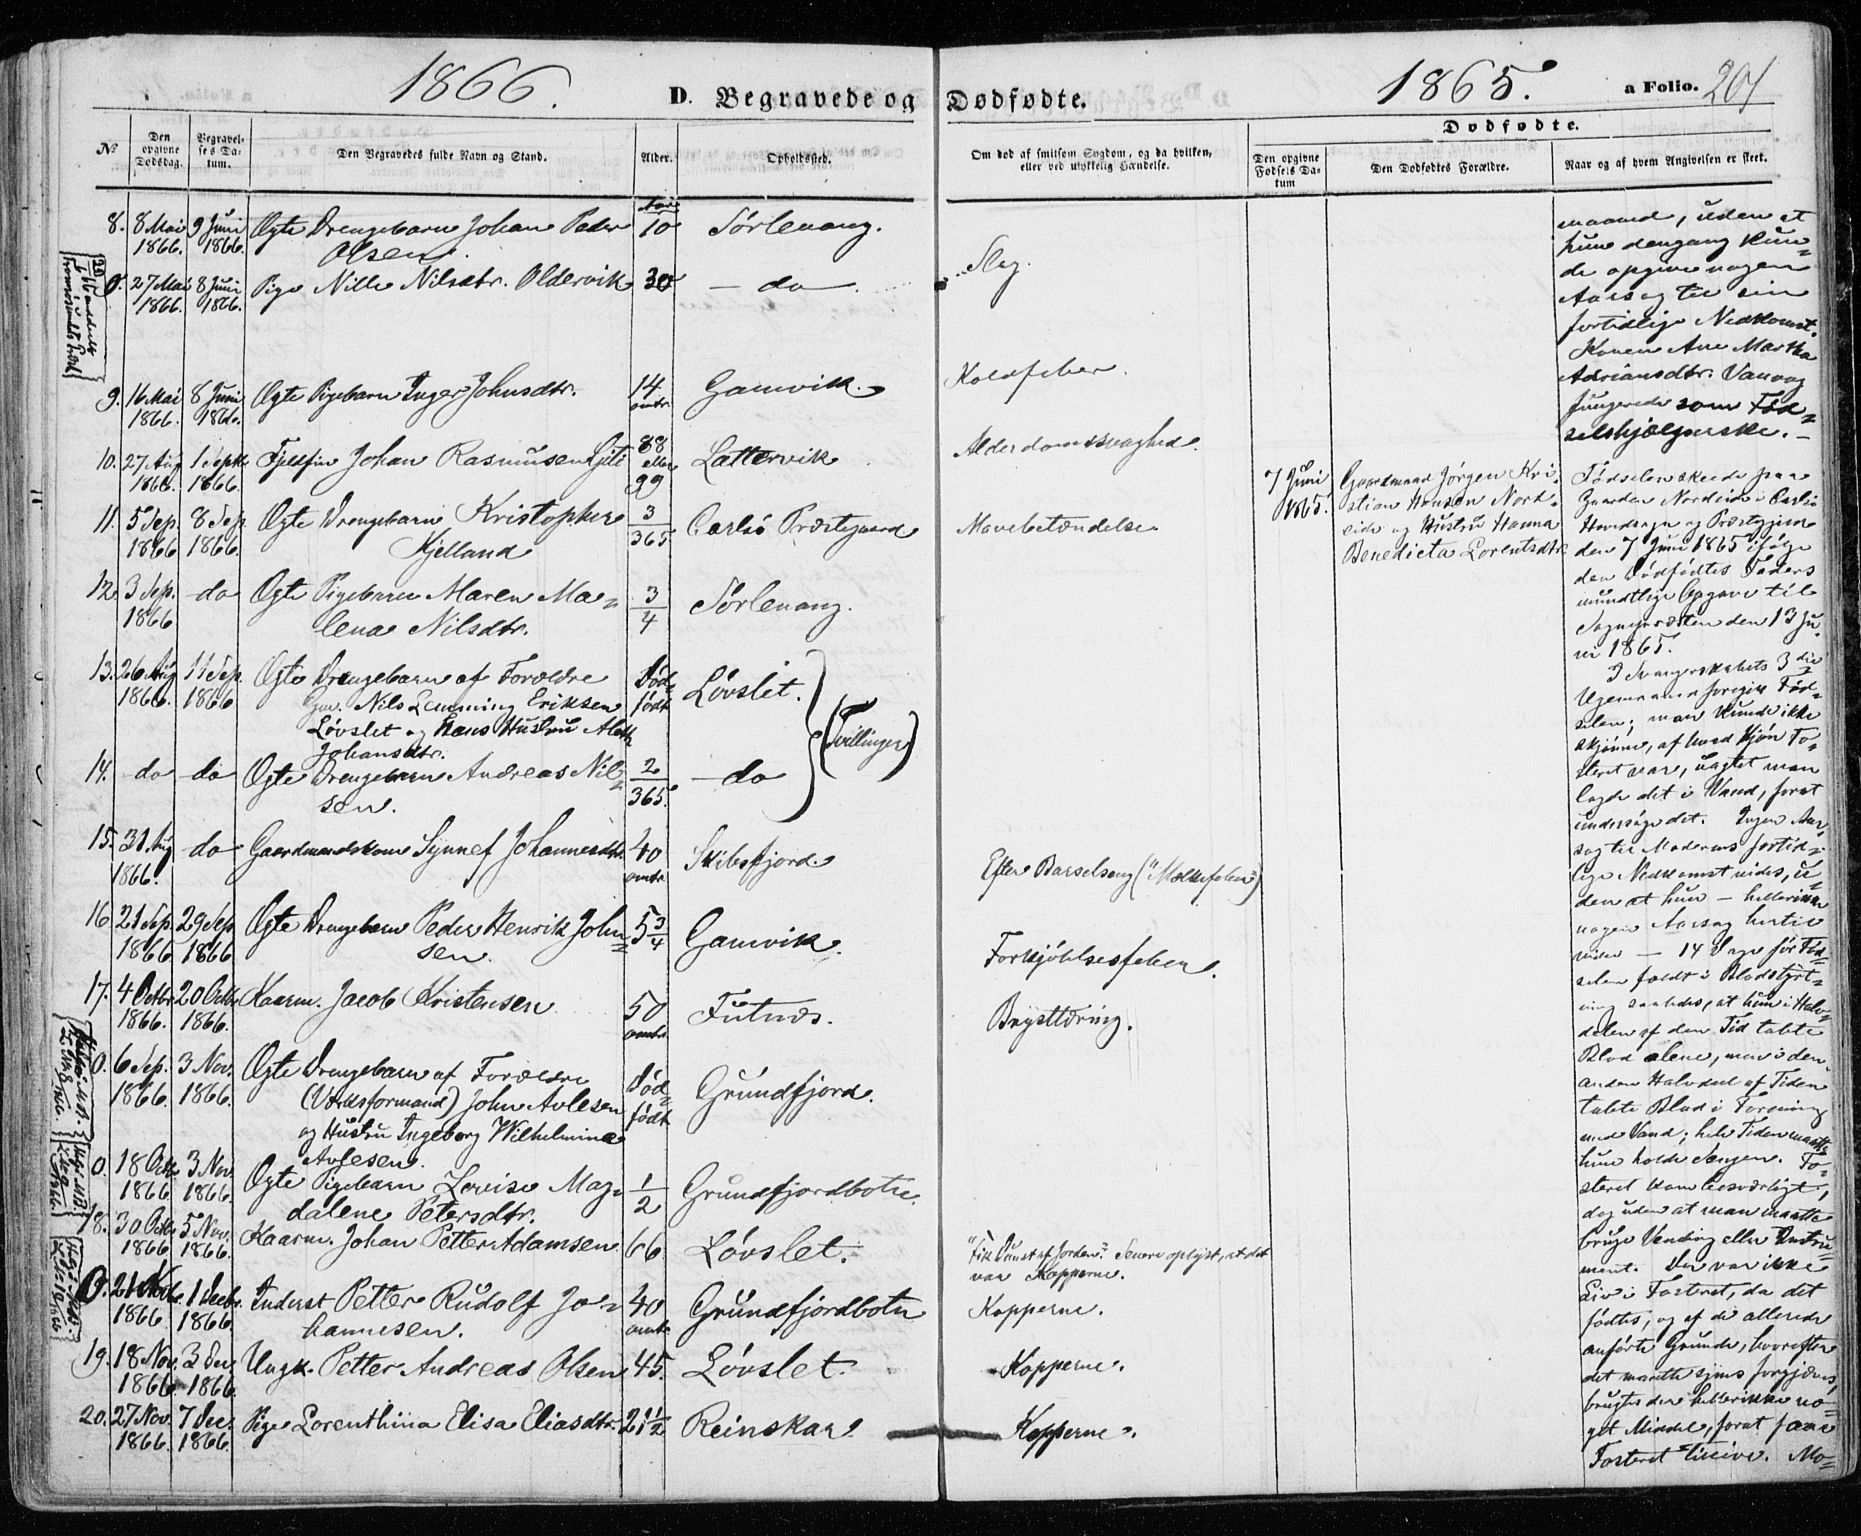 1866.
D. Begravede og Dødfødte.
1865.
a Folio. 201
Dødfødte.
No
Den opgivne Dødsdag.
Begravelses Datum.
Den Begravedes fulde Navn og Stand.
Alder.
Opholdssted.
Om død af smitsom Sygdom, og da hvilken, eller ved ulykkelig Hændelse.
Den opgivne Fødsels Datum
Den Dødfødtes Forældre.
Naar og af hvem Angivelsen er skeet.
8. 8 Mai 9 Juni Ægte Drengebarn Johan Peder 10 Sørlenang.
1866. 1866. Olsen.
0. 27 Mai 8 Juni Pige Nille Nilsdtr. Oldervik 30 — do — Slag.
1866. 1866.
9. 16 Mai 8 Juni Ægte Pigebarn Inger Johnsdtr. 14 Gamvik. Koldfeber.
1866. 1866. omtr.
10. 27 Aug 1 Septr Fjeldfin Johan Rasmusen 88 Lattervik Alderdomssvaghed.
1866. 1866. eller
99
11. 5 Sep. 8 Sep. Ægte Drengebarn Kristopher 3 Carlsø Præstegaard Mavebetændelse
1866 1866. Kjelland 365
12. 3 Sep. do Ægte Pigebarn Maren Ma= 3 Sørlenang.
1866 lena Nilsdtr. 4
13. 26 Aug 11 Sep. Ægte Drengebarn af Forældre Død= Løvslet.
1866. 1866 Gm. Nils Lemming Eriksen født
Løvslet og Hans Hustru
Johansdtr.
(Tvillinger)
14. do do Ægte Drengebarn Andreas Nil= 2 — do
sen. 365.
15. 31 Aug do Gaardmandskone Synnef Johannesdtr. 40 Skibsfjord. Efter Barselseng ("Mælkefeber")
1866. omtr.
16 21 Sep. 29 Sep. Ægte Drengebarn Peder Henrik John= 5 3/4 Gamvik. Forkjølelsesfeber.
1866 1866 sen.
17. 4 Octbr 20 Octbr Kaarm. Jacob Kristensen 50 Futnæs. Brysttæring.
1866. 1866. omtr.
0. 6 Sep. 3 Nov. Ægte Drengebarn af Forældre Død= Grundfjord.
1866. 1866. John Avlesen født
og Hustru Ingeborg Wilhelmine
Avlesen.
0. 18 Octbr 3 Nov. Ægte Pigebarn Lovise Mag= 1 Grundfjordbotn.
1866. 1866. dalene Petersdtr. 2
18. 30 Octbr 5 Nov. Kaarm. Johan Petter Adamsen 66. Løvslet. "Fik Dunst af Jorden". Senere oplyst, at det
1866 1866. var Kopperne.
0. 21 1 Decbr. Inderst Petter Rudolf Jo= 40 Grundfjordbotn Kopperne.
1866. 1866. hannesen. omtr.
19. 18 Nov. 3 Dec Ungk. Petter Andreas Olsen 45. Løvslet. Kopperne.
1866. 1866.
20. 27 Nov. 7 Dec. Pige Lorenthina Elisa Eliasdtr. 21 1/2 Reinskar. Kopperne.
1866. 1866.
7 Juni Gaardmand Jørgen Kri=
1865. stian Hansen Nord=
eide og Hustru Hanna
Benedicta Lorentsdtr
maaned, uden at
hun dengang kun=
de opgive nogen
Aarsag til sin
fortidlige Nedkomst.
Konen Ane Martha
Adriansdtr. Vanvag
fungerede som Fød=
selshjælperske. —
Fødselen skede paa
Gaarden Nordeide i Carlsø
Hovedsogn og Præstegjeld
den 7 Juni 1865 ifølge
den Dødfødtes Faders
mundtlige Opgave til
Sognepræsten den 13 Ju=
ni 1865.
I Svangerskabets 3die
Ugemaaned foregik Fød=
selen; man kunde ikke
skjønne, af hvad Kjøn Fo=
steret var, uagtet man
lagde det i Vand, forat
undersøge det. Ingen Aar=
sag til Moderens fortid=
lige Nedkomst vides, u=
den at hun — hellerikke
nogen Aarsag hertil
vides — 14 Dage før Fød=
selen faldt i Blodstyrt=
ning saaledes, at hun i Halv=
delen af den Tid tabte
Blod alene, men i den
anden Halvdel af Tiden
tabte Blod i Forening
med Vand; hele Tiden maatte
hun holde Sengen. Fo=
steret kom besværligt,
dog uden at man maatte
bruge Vending eller Instru=
ment. Der var ikke
Liv i Fosteret, da det
fødtes, og af de allerede
anførte Grunde, hvorefter
det maatte synes forgjæves,
brugtes der hellerikke no=
get Middel, forat faae
Fosteret tillive. Mo=